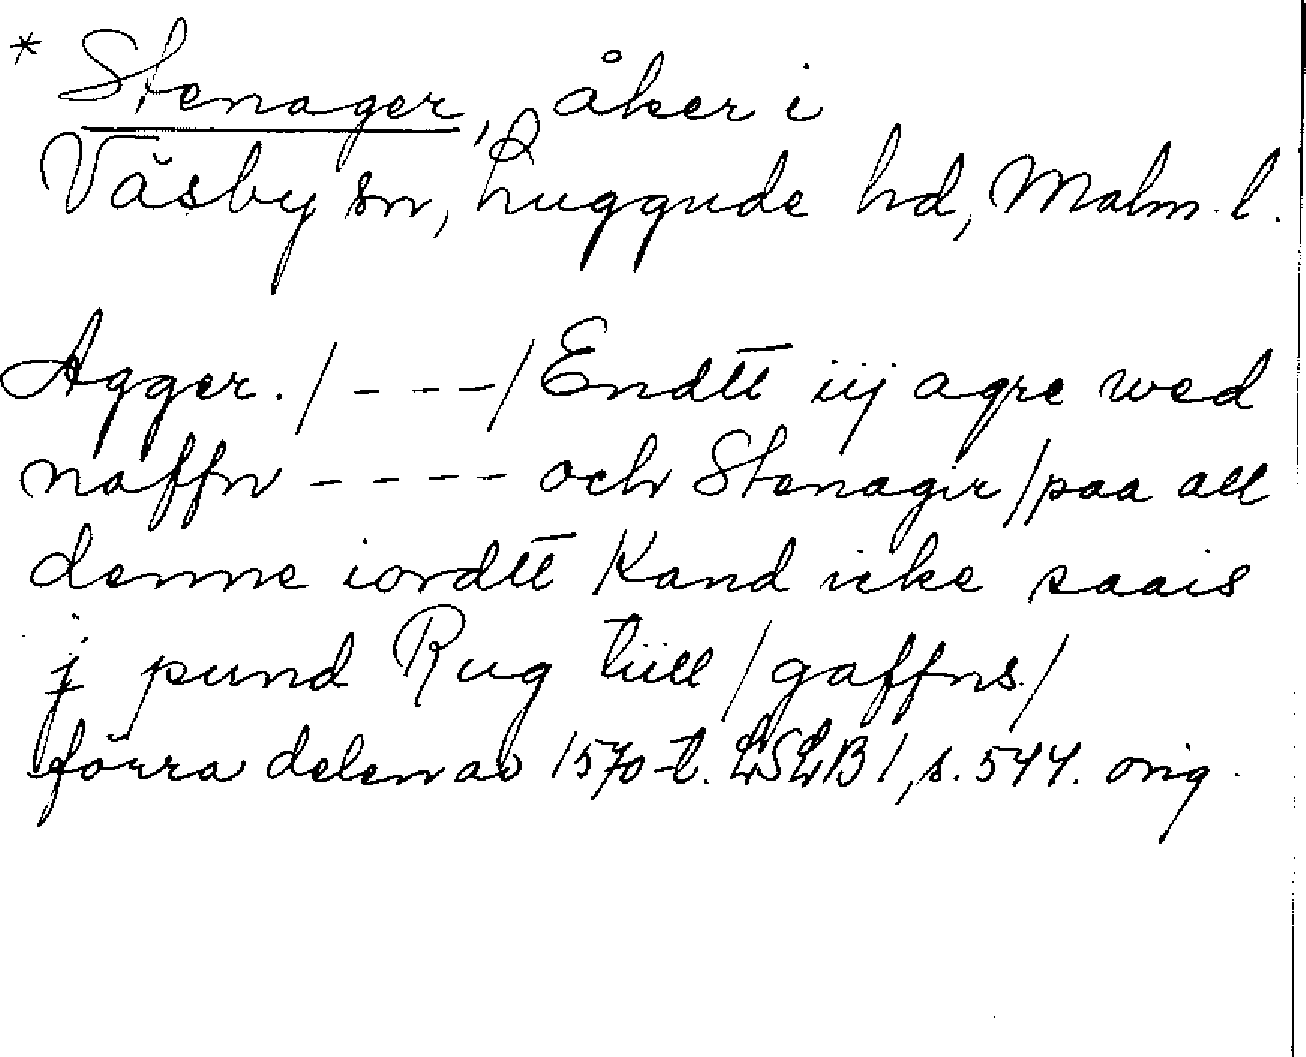 * Stenager, åker i
Väsby sn, Luggude hd, Malm. l.
Agger. / - - - / Endtt iij agre wed
naffn - - - - och Stenagir / paa all
denne iordtt Kand icke saais
j pund Rug tiill / gaffns. /
förra delen av 1570-t. LSLB 1, s. 544. orig.